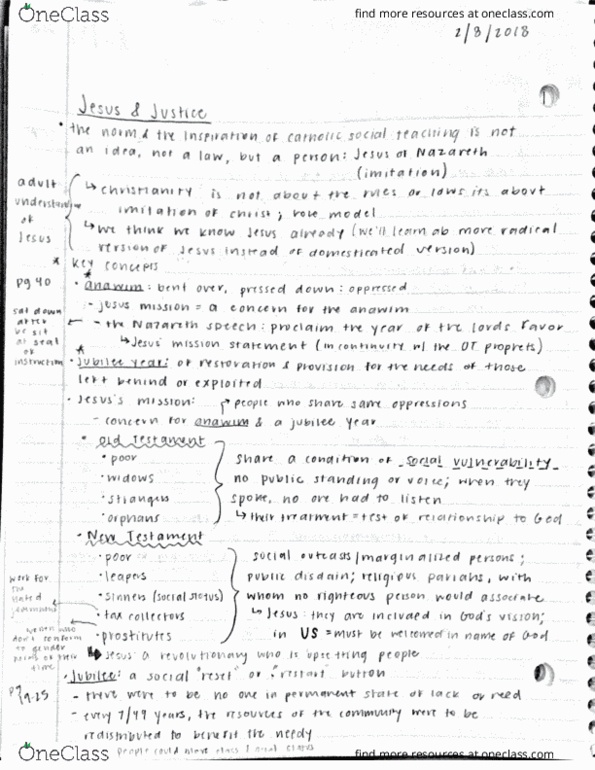 OneClass
find more resources at oneclass.com
2/8/2018
Jesus & Justice
• the norm & the inspiration of catholic social teaching is not
an idea, not a law, but a person: Jesus of Nazareth
(imitation)
adult
understanding
of
Jesus
↳ christianity is not about the rules or laws its about
imitation of christ; role model
↳ we think we know Jesus already (we'll learn ab more radical
version of Jesus instead of domesticated version)
* key concepts
pg 40
• anawim: bent over, pressed down: oppressed
- jesus mission = a concern for the anawim
sat down
after
he sit
at seat
of
instruction
- the Nazareth speech: proclaim the year of the lords favor
↳ Jesus' mission statement (in continuity w/ the OT prophets)
• Jubilee year: of restoration & provision for the needs of those
left behind or exploited
• Jesus's mission: people who share same oppressions
- concern for anawim & a jubilee year
• Old Testament
• poor
• widows
• strangers
• orphans
share a condition of social vulnerability
no public standing or voice; when they
spoke, no one had to listen
↳ their treatment = test of relationship to God
• New Testament
• poor
• leapers
• sinners (social status)
• tax collectors
• prostitutes
social outcasts/marginalized persons;
public disdain; religious pariahs, with
whom no righteous person would associate
↳ Jesus: they are included in God's vision;
in US = must be welcomed in name of God
work for
the
hated
women who
don't conform
to gender
norms of their
time
↳ Jesus: a revolutionary who is upsetting people
• Jubilee: a social "reset" or "restart" button
pg 19-25
- there were to be no one in permanent state of lack or need
- every 7/49 years, the resources of the community were to be
redistributed to benefit the needy
people could move class & social status
OneClass
find more resources at oneclass.com